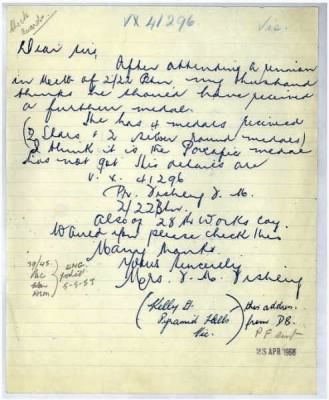 Check
Awards
VX 41296
Vic.
Dear Sir,
After attending a reunion
in Melb of 2/22 Bhn, my husband
thinks he should have received
a further medal.
He has 4 medals received
(2 Stars & 2 silver round medals)
I think it is the Pacific medal
has not got. His details are
V.X. 41296
Pte.
2/22 Bhn.
also of 28th Works Coy.
Would you please check this
Many thanks
Yours sincerely
Mrs.
39/45
Pac
War
ENC
posted
5-5-53
(Kelly St
Pyramid Hill
Vic.
this address
from DB.
23 APR 1968